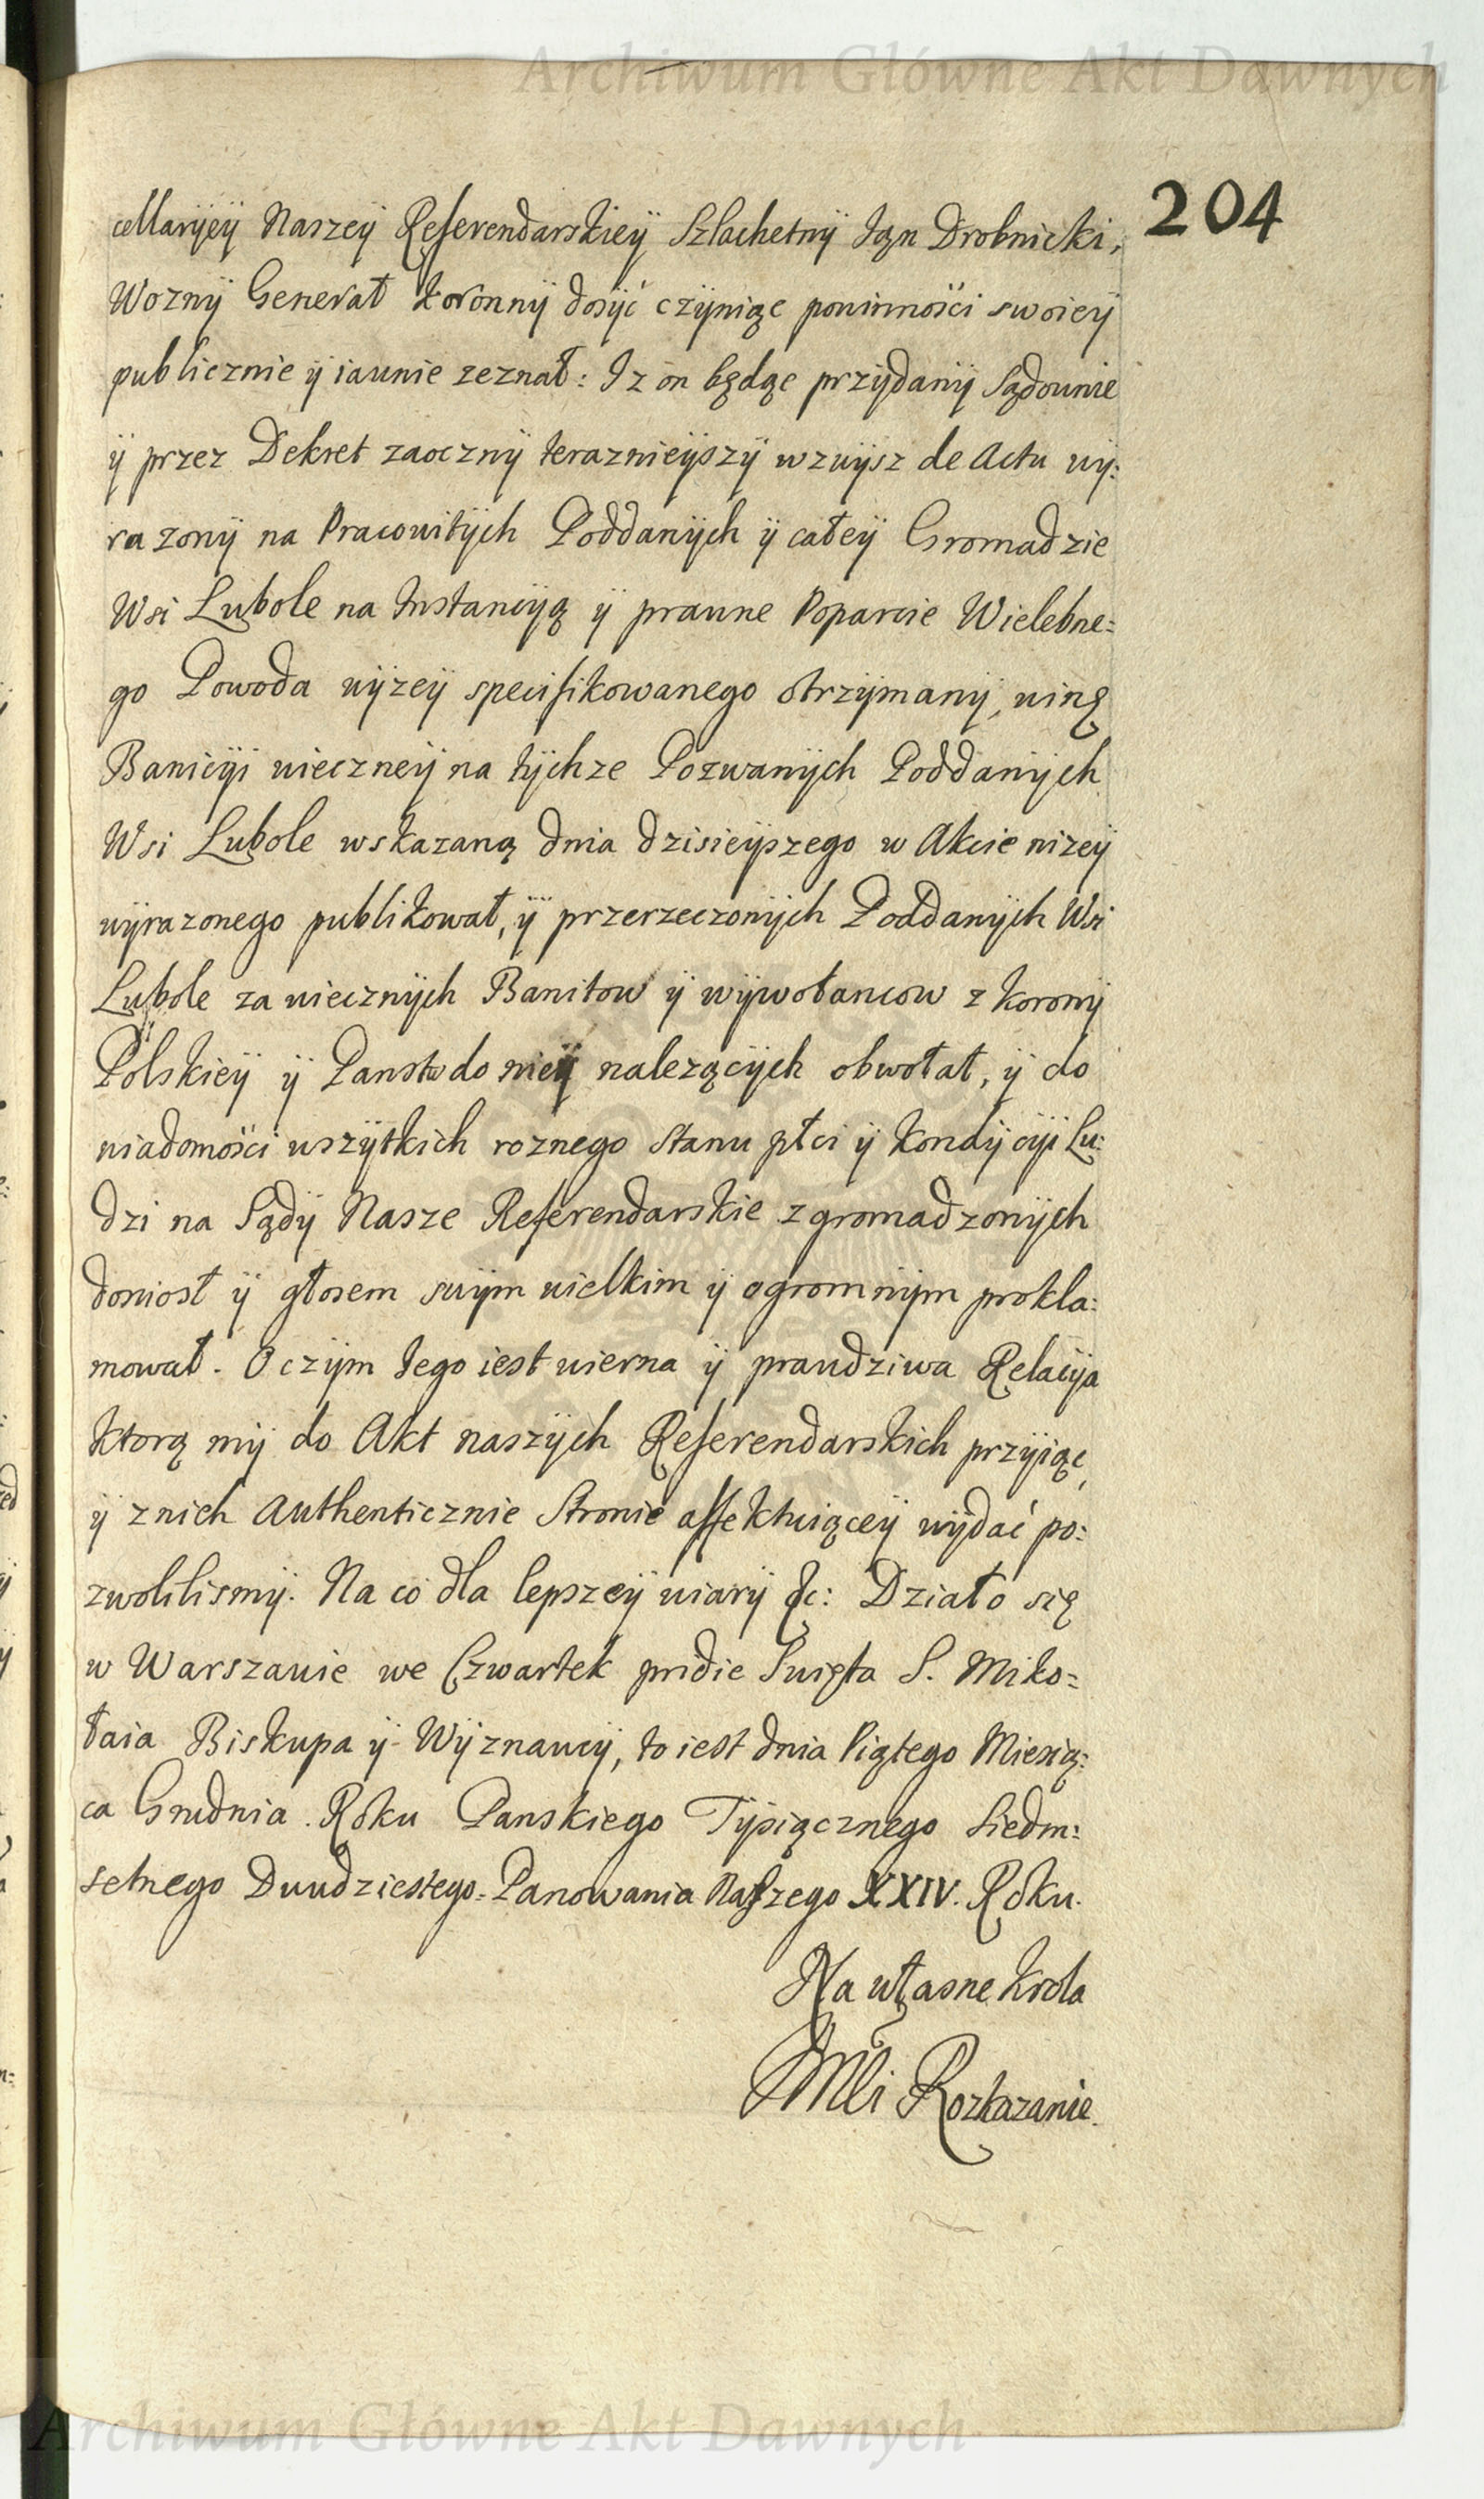 Archiwum Główne Akt Dawnych
204
cellaryiey Naszey Referendarskiey Szlachetny Jan Drobnicki,
Wozny Generał koronny dosyć czyniąc powinności swoiey
publicznie ÿ iawnie zeznał: Iz on będąc przydany Sądownie
ÿ przez Dekret zaoczny terazniejszy wzwysz de Actu wy:
razony na Pracowitych Poddanych ÿ całey Gromadzie
Wsi Lubole na Instancyą ÿ prawne Poparcie Wielebne=
go Powoda wyzey specifikowanego otrzymany, winę
Banicyi wieczney na tychze Pozwanych Poddanych
Wsi Lubole wskazaną dnia dzisieyszego w Akcie nizey
wyrazonego publikował, ÿ przerzeczonych Poddanych Wsi
Lubole za wiecznych Banitow ÿ wywołancow z korony
Polskiey ÿ Panstw do niey nalezących obwołał, ÿ do
wiadomości wszytkich roznego Stanu płci ÿ kondycyi Lu:
dzi na Sądy Nasze Referendarskie zgromadzonych
doniosł ÿ głosem swym wielkim ÿ ogromnym prokla:
mował. O czym tego iest wierna ÿ prawdziwa Relacyja
ktorą my do Akt naszych Referendarskich przyiąć,
ÿ z nich Authenticznie Stronie affektuiącey wydać po:
zwolilismy. Na co dla lepszey wiary &c: Działo się
w Warszawie we Czwartek pridie Swięta S. Miko=
łaia Biskupa ÿ Wyznawcy, to iest dnia Piątego Miesią:
ca Grudnia. Roku Panskiego Tysiącznego Siedm:
setnego Dwudziestego. Panowania Naszego XXIV. Roku.
Na własne krola
JMci Rozkazanie.
Archiwum Główne Akt Dawnych